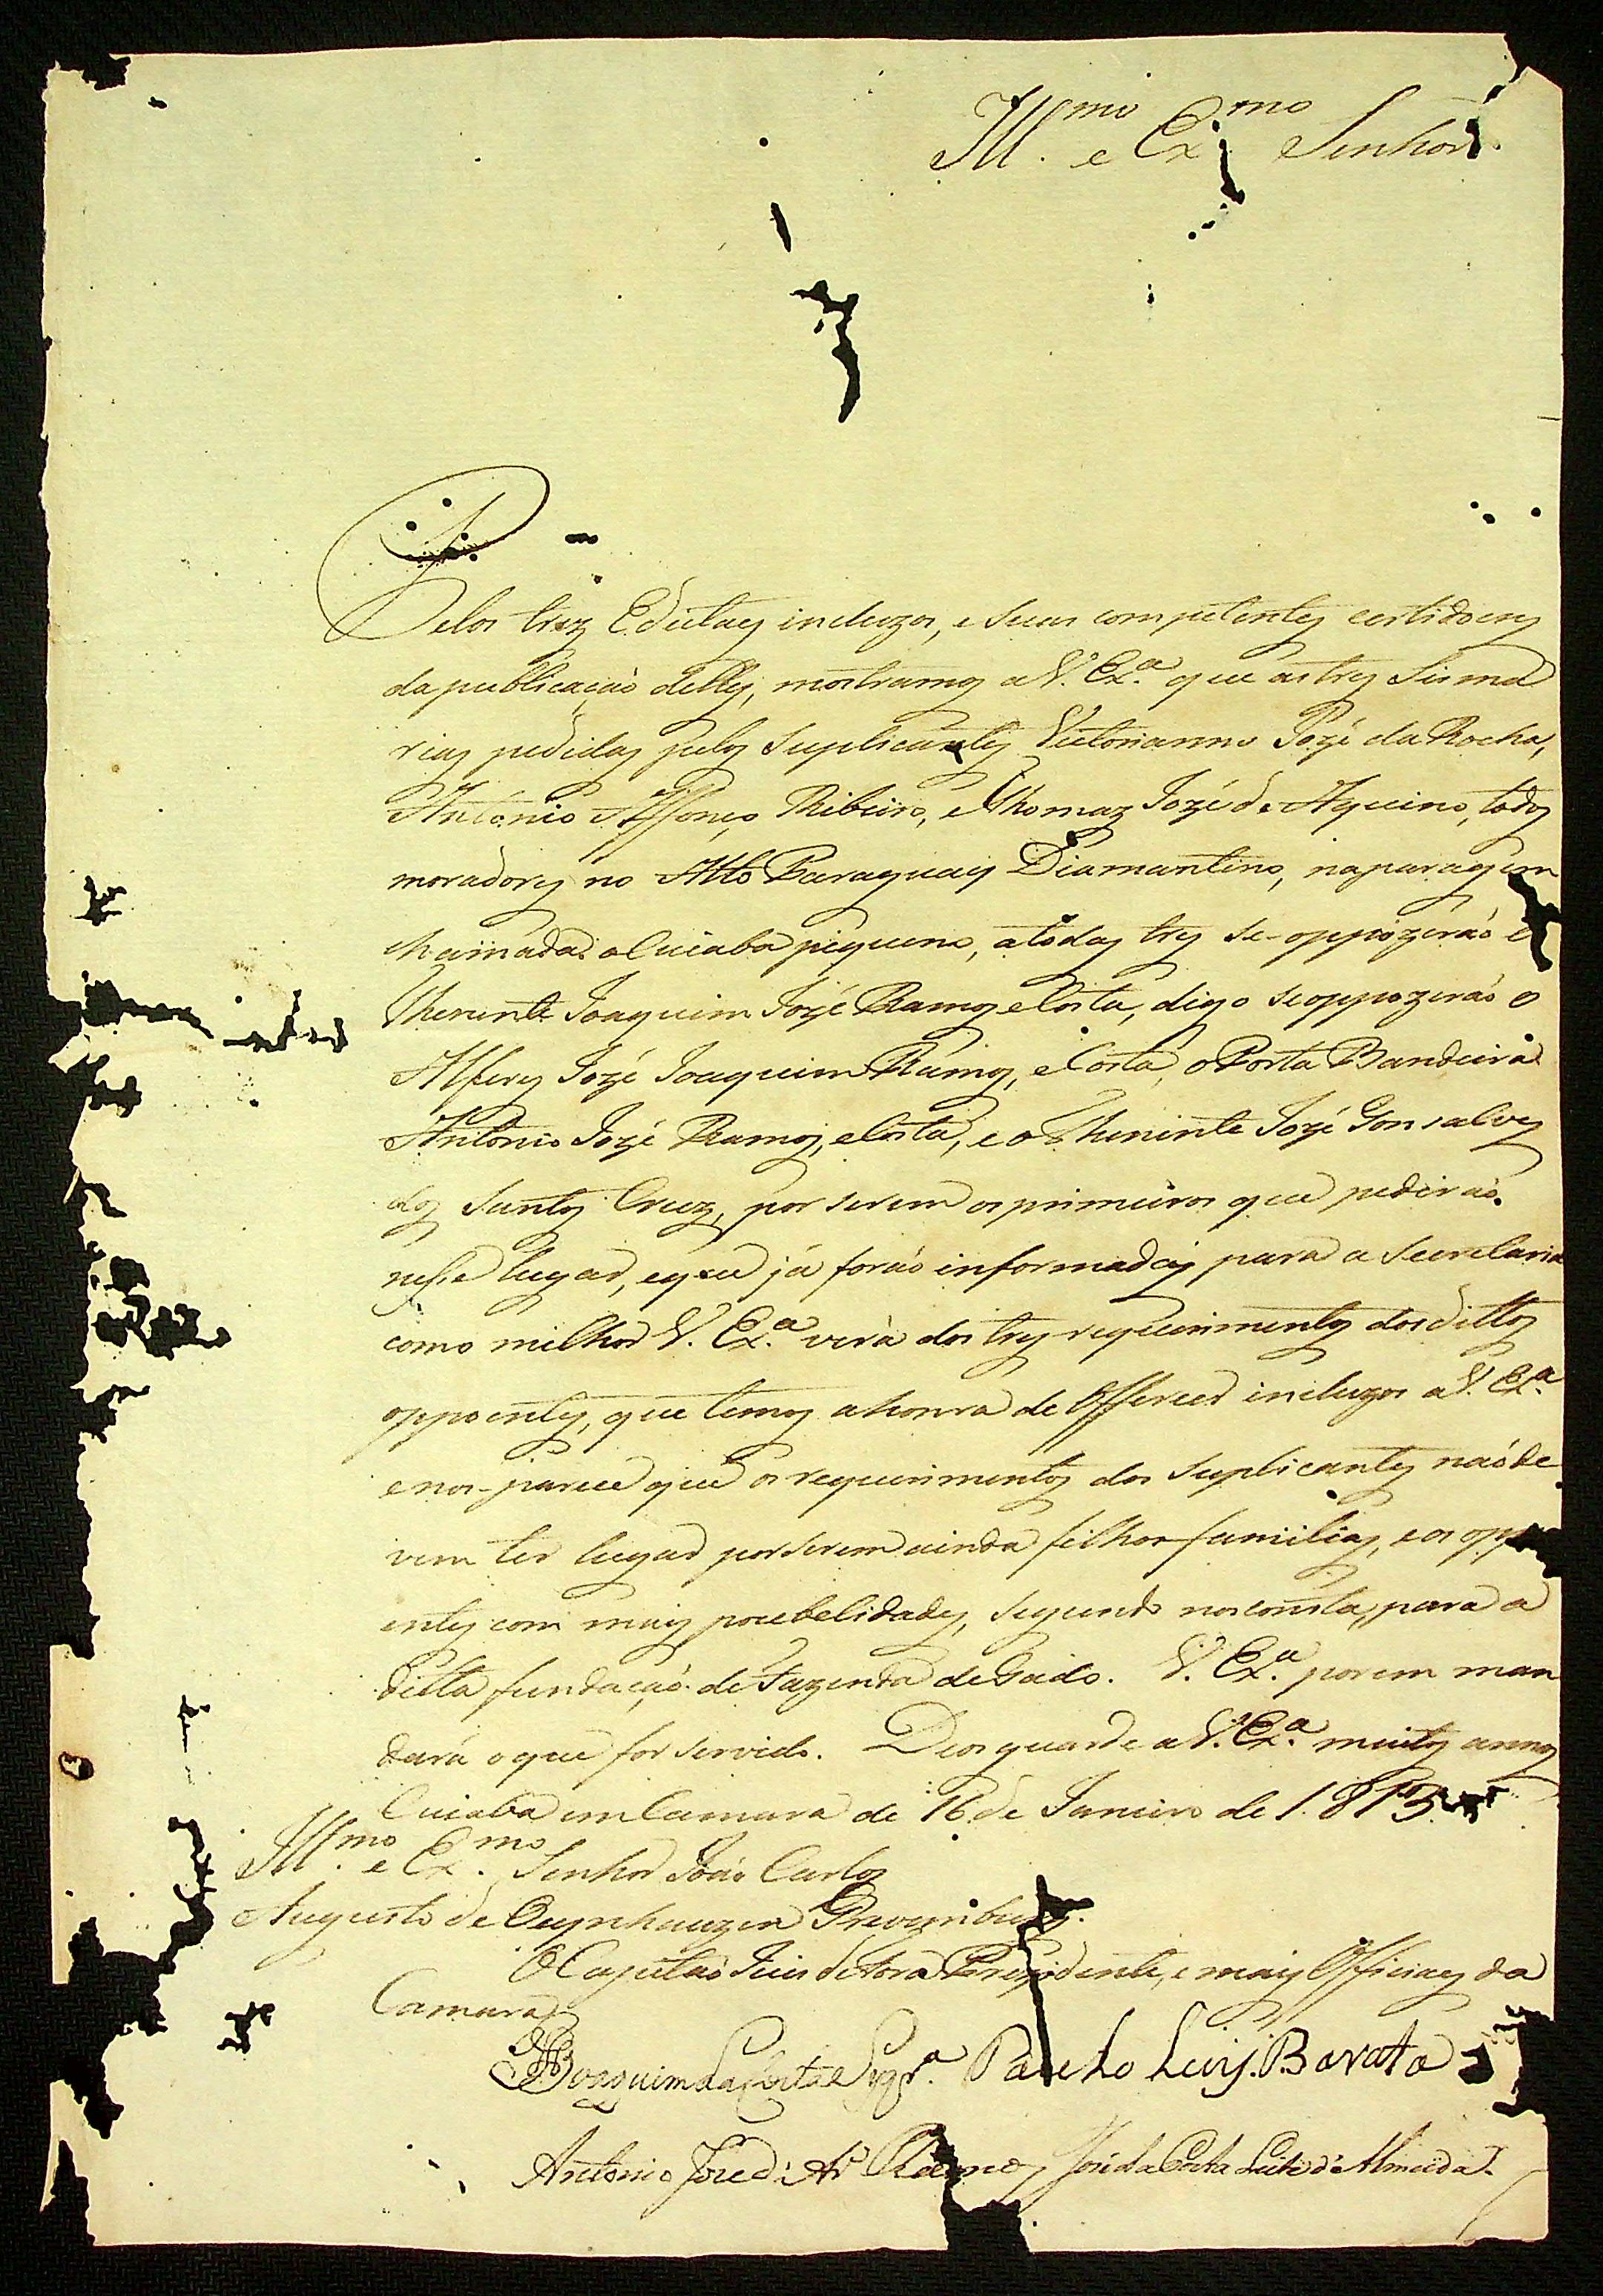 Ill.mo e Ex.mo Senhor.
Pelos trez Edictaes incluzos, e suas competentes certidoens
da publicação delles, mostramos a V. Ex.a que as tres Sisma
rias pedidas pelos Suplicantes Victorianno Jozé da Rocha,
Antonio Affonço Ribeiro, e Thomaz Jozé de Aquino, todos
moradores no Alto Paraguay Diamantino, na paragem
chamada o Cuiaba piqueno, a todas tres se-oppozerão o
Thenente Joaquim Jozé Ramos e Costa, digo se oppozerão o
Alferes Jozé Joaquim Ramos, e Costa, o Porta Bandeira
Antonio Jozé Ramos, e Costa, e o Thenente Jozé Gonsalves
dos Santos Cruz, por serem os primeiros que pedirão
nesse lugar, e que já forão informadas para a Secretaria
como milhor V. Ex.a verá dos tres requerimentos dos dittos
oppoentes, que temos a honra de Offerecer incluzos a V. Ex.a
e nos-parece que os requerimentos dos Suplicantes não de
vem ter lugar por serem ainda filhos familias, e os oppo
entes com mais pocebelidades, segundo nos consta, para a
ditta fundação de Fazenda de Gado. V. Ex.a porem man
dará o que for servido. Deos guarde a V. Ex.a muitos annos
Cuiaba em Camara de 16 de Janeiro de 1813.
Ill.mo e Ex.mo Senhor João Carlos
Augusto de Oeynhauzen Grevenburg.
O Capitão Juis de Fora Prezidente, e mais Officiaes da
Camara
Joaquim da Costa e Sequr.a Paulo Luis Barata
Antonio Joze d' Ramos José da Costa Leite d'Almeida.